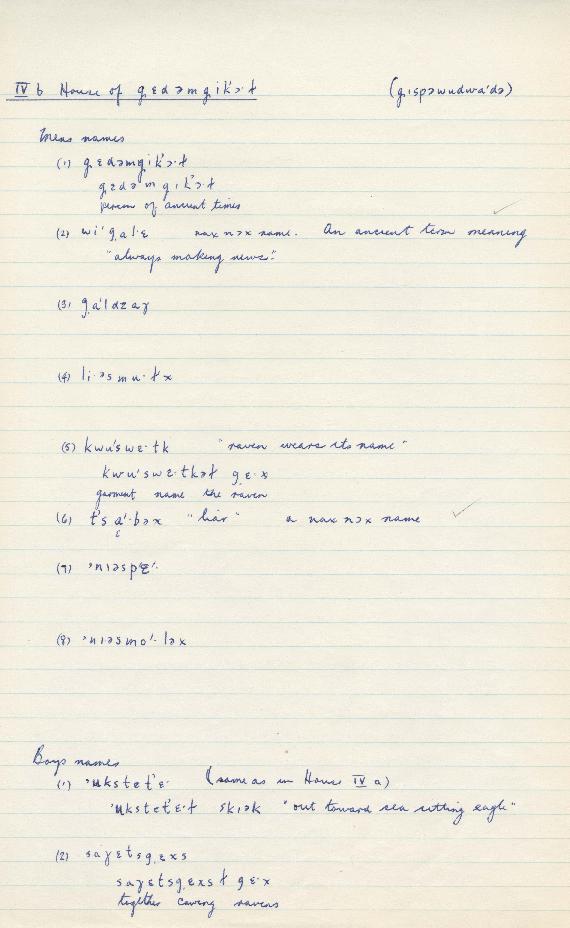 IV b House of g̣ɛdəmg̣ik'ɔ·ł (g̣ɪspəwudwa'də)
Mens names
(1) g̣ɛdəmg̣ik'ɔ·ł
g̣ɛdəm g̣ɪk'ɔ·ł
person of ancient times
(2) wi'g̣al·ɛ nax nɔx name. An ancient term meaning
"always making news."
(3) g̣a'ldzaɣ
(4) li·əsmu·łx
(5) kwu'swɛ·tk "raven wears its name"
kwu'swɛ·tkəł g̣ɛ·x
garment name the raven
(6) t's a'·bəx "liar" a nax nɔx name
ɛ
(7) 'nɪəspɛ'·
(8) 'nɪəsmo'·ləx
Boys names
(1) 'ukstɛt'ɛ· (same as in House IV a)
'ukstɛt'ɛ·ł skɪək "out toward sea sitting eagle"
(2) saɣɛtsg̣ɛxs
saɣɛtsg̣ɛxs ł g̣ɛ·x
together cawing ravens